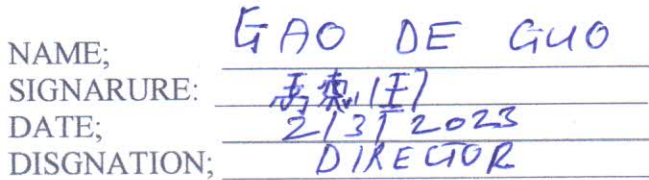 NAME; GAO DE GUO
SIGNARURE:
DATE; 2/3/2023
DISGNATION; DIRECTOR